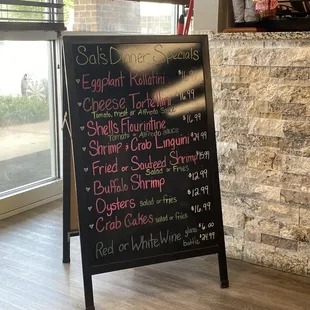 Sal's Dinner Specials
Eggplant Rollatini $16.99
Cheese Tortellini $16.99
Tomato, meat or Alfredo Sauce
Shells Flourintine $16.99
Tomato or Alfredo sauce
Shrimp & Crab Linguini $24.99
Fried or Souteed Shrimp $15.99
Salad or Fries
Buffalo Shrimp $12.99
Oysters salad or fries $12.99
Crab Cakes salad or fries $16.99
Red or White Wine glass $6.00
bottle $24.99